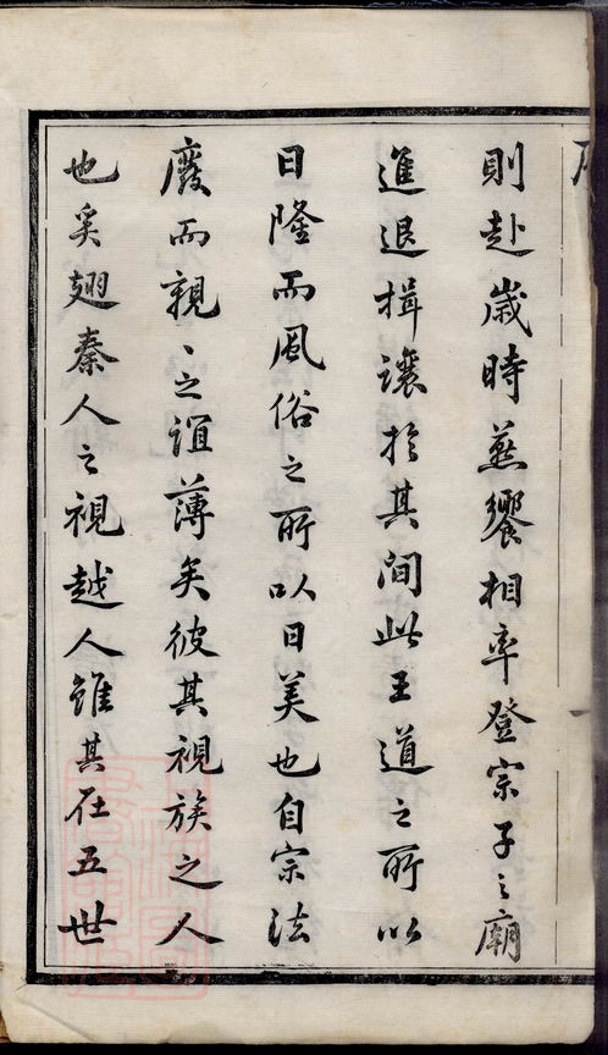 則赴歲時燕饗相率登宗子之廟
進退揖讓扵其間此王道之所以
日隆而風俗之所以日美也自宗法
廢而親〻之誼薄矣彼其視族之人
也奚翅秦人之視越人雖其在五世